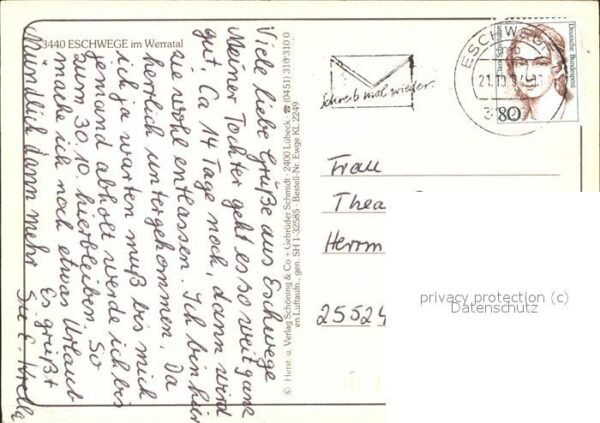 3440 ESCHWEGE im Werratal
Viele liebe Grüße aus Eschwege
Meiner Tochter geht es so weit ganz
gut. Ca 14 Tage noch, dann wird
sie wohl entlassen. Ich bin hier
herrlich untergekommen. Da
ich ja warten muß bis mich
jemand abholt werde ich bis
zum 30.10. hierbleiben. So
mache ich noch etwas Urlaub
Es grüßt
Mündlich dann mehr
© Herst. u. Verlag Schöning & Co + Gebrüder Schmidt · 2400 Lübeck · ☎ (0451) 310 310 0
en Luftaufn., gen. SH 1-32585 · Bestell-Nr. Ewge KL 2249
Schreib mal wieder
ESCHWEGE
Deutsche Bundespost
80
Frau
Thea
Herrm
25524
privacy protection (c)
Datenschutz